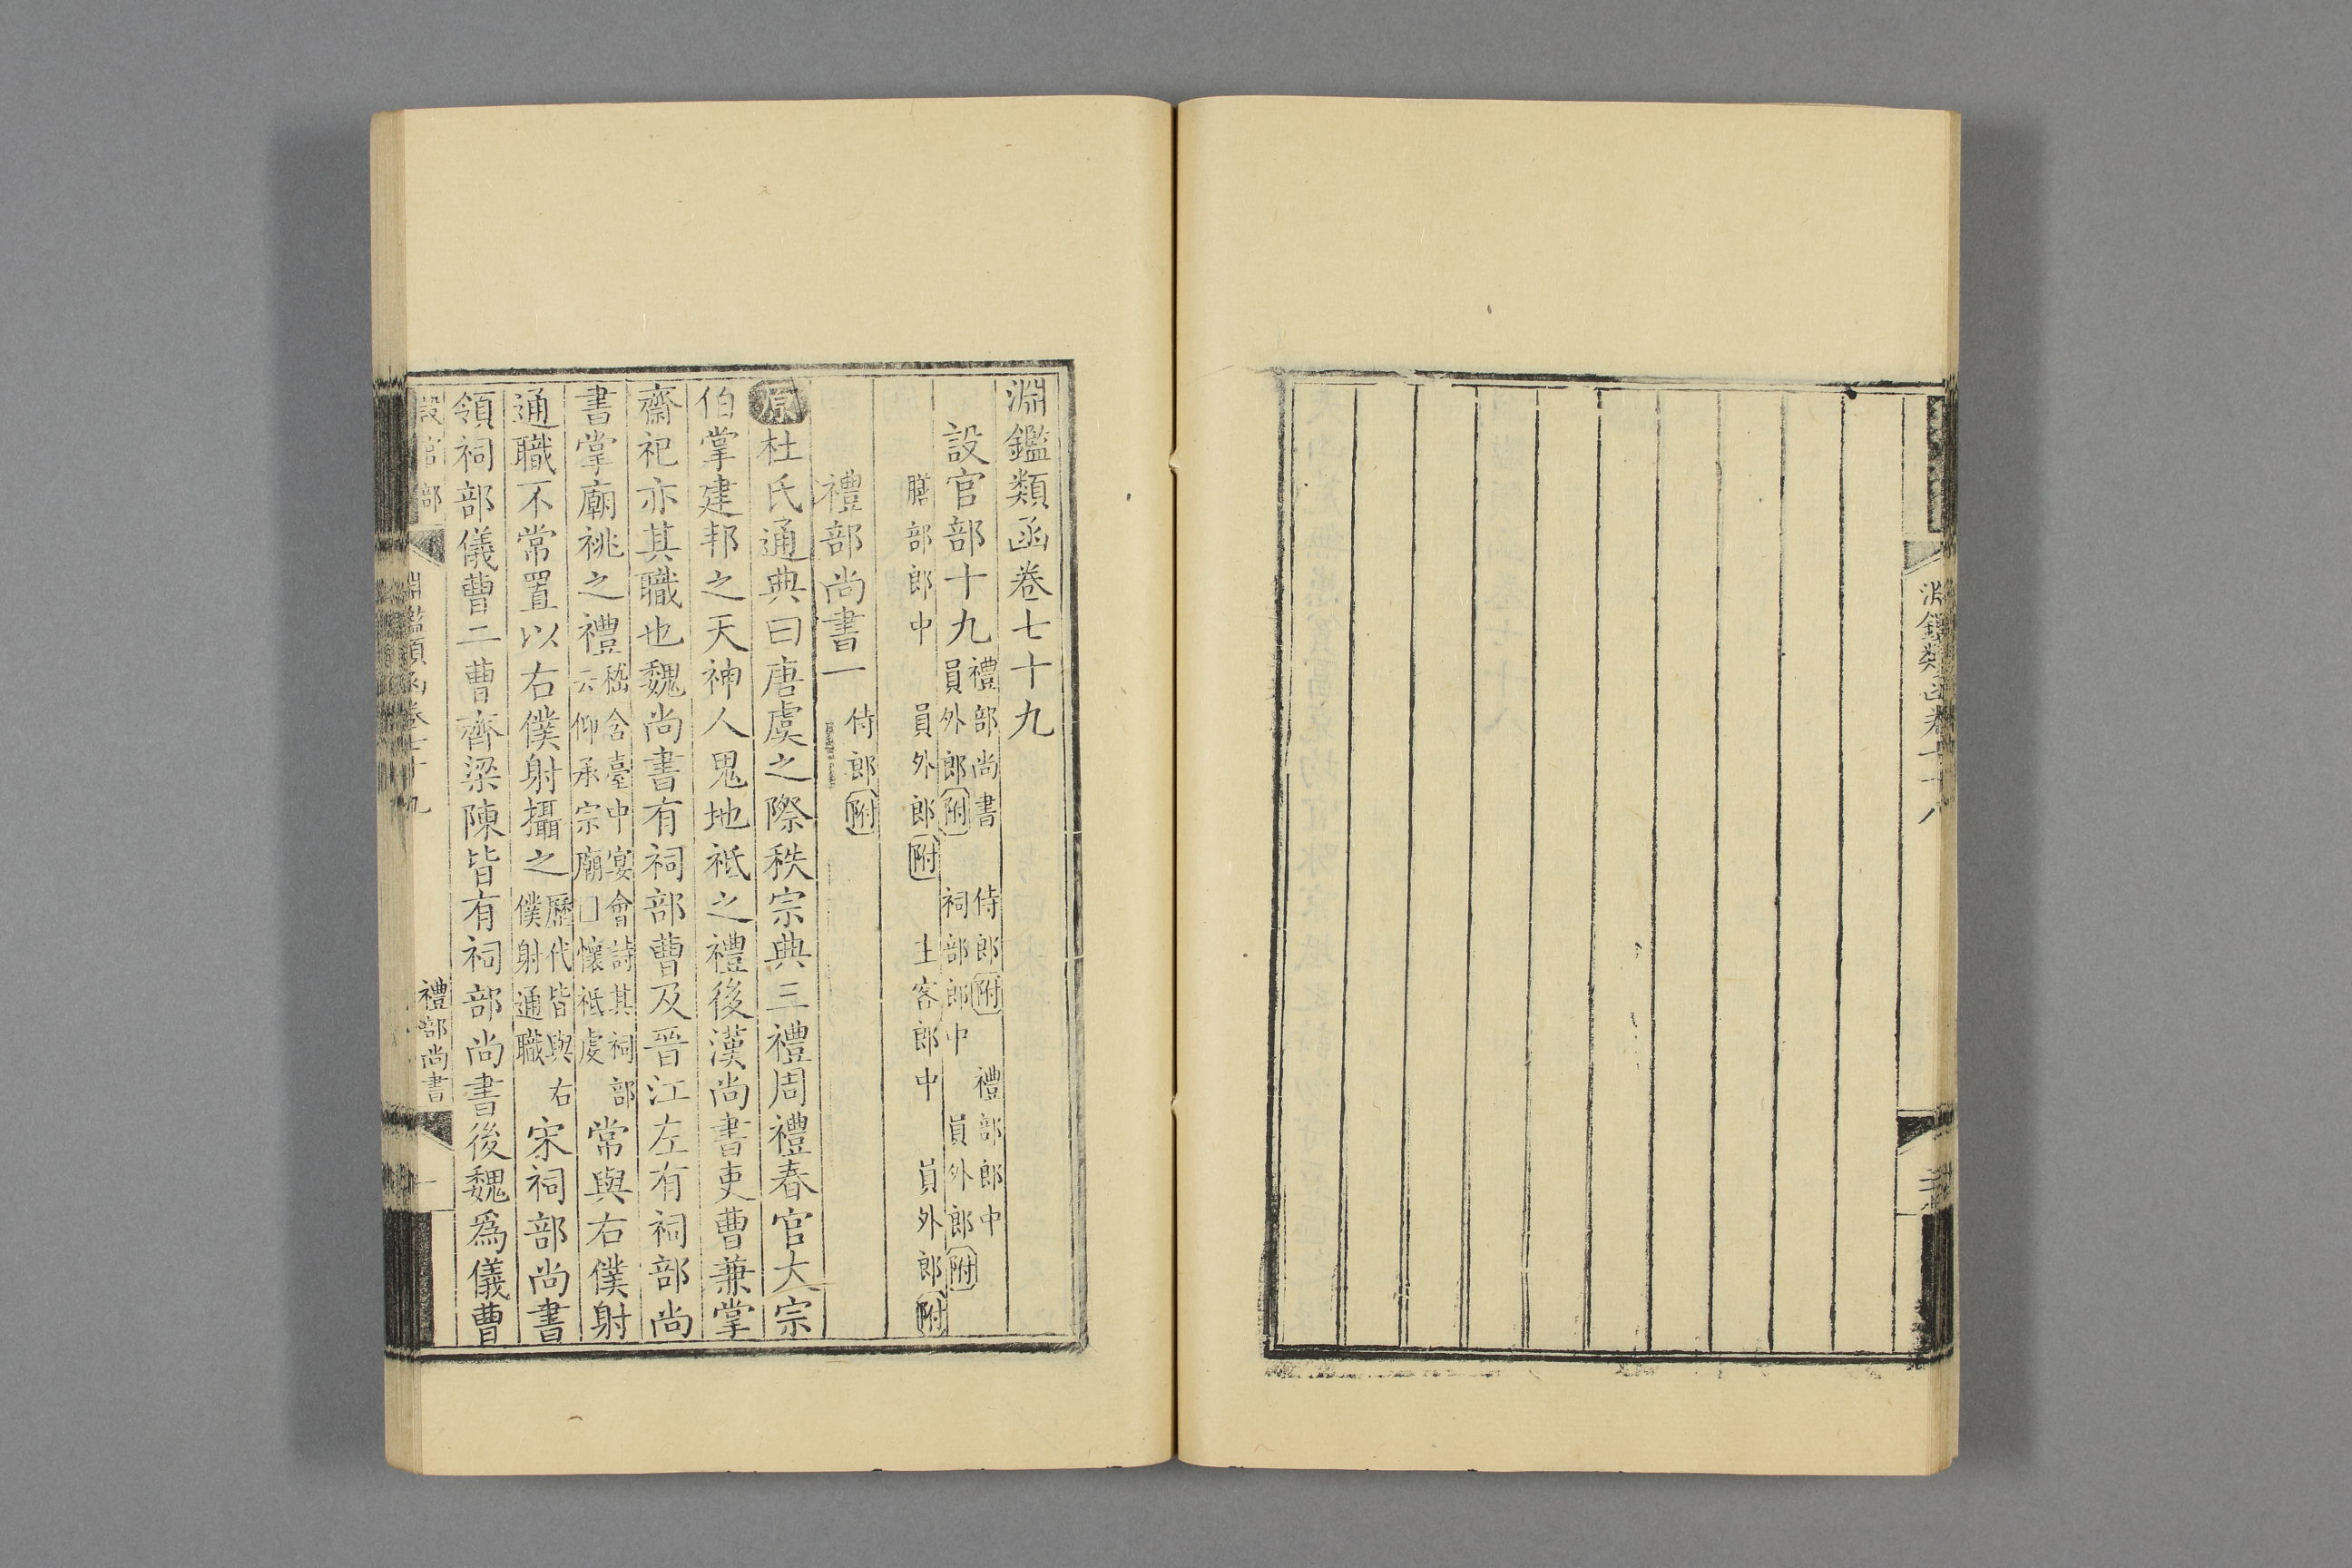 淵鑑類函卷七十八
淵鑑類函卷七十九
設官部十九 禮部尚書 侍郎附 禮部郎中
員外郎附 祠部郎中 員外郎附
膳部郎中 員外郎附 主客郎中 員外郎附
禮部尚書一 侍郎附
原杜氏通典曰唐虞之際秩宗典三禮周禮春官大宗
伯掌建邦之天神人鬼地祇之禮後漢尚書吏曹兼掌
齋祀亦其職也魏尚書有祠部曹及晉江左有祠部尚
書掌廟祧之禮嵇含臺中宴會詩其祠部云仰承宗廟□懷祗虔常與右僕射
通職不常置以右僕射攝之歷代皆與右僕射通職宋祠部尚書
領祠部儀曹二曹齊梁陳皆有祠部尚書後魏為儀曹
設官部 淵鑑類函卷七十九 禮部尚書 一